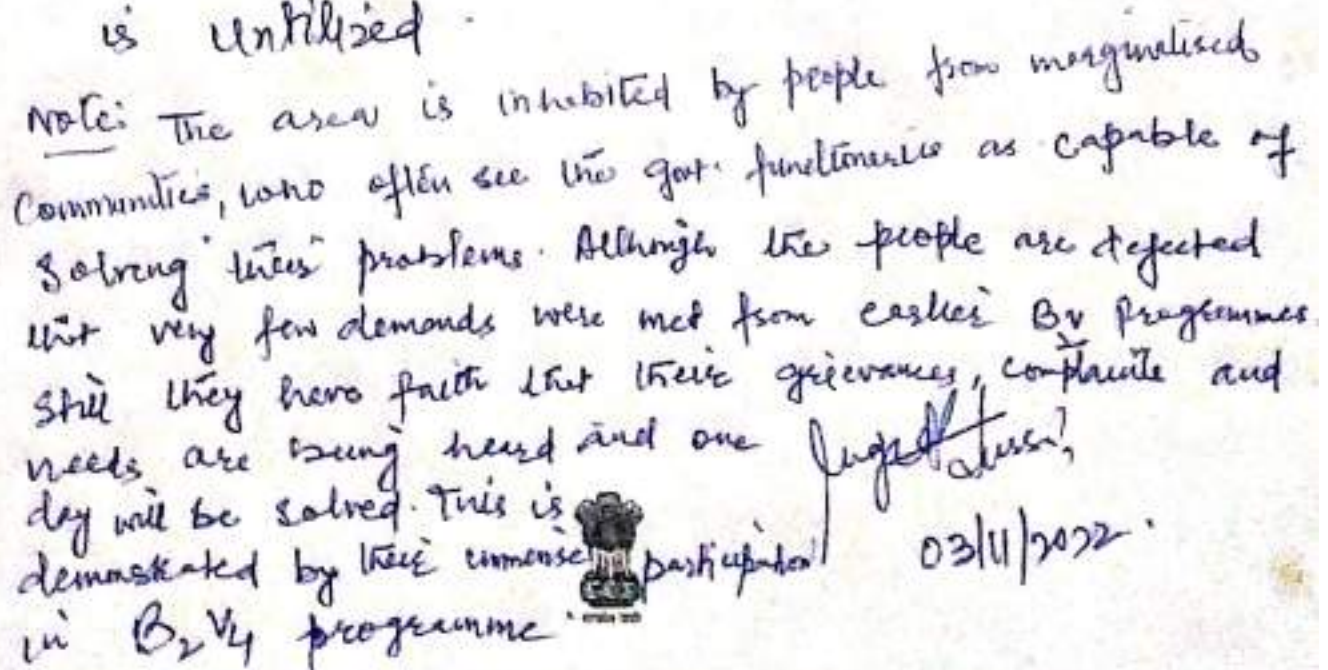 is Untilized.
Note: The area is inhabited by people from marginalised
Communities, who often see the govt. functionaries as capable of
Solving their problems. Although the people are dejected
that very few demands were met from earlier B2V Programmes.
Still they have faith that their grievances, complaints and
needs are being heard and one
day will be solved. This is
demonstrated by their immense participation
in B2V4 programme.
03/11/2022.